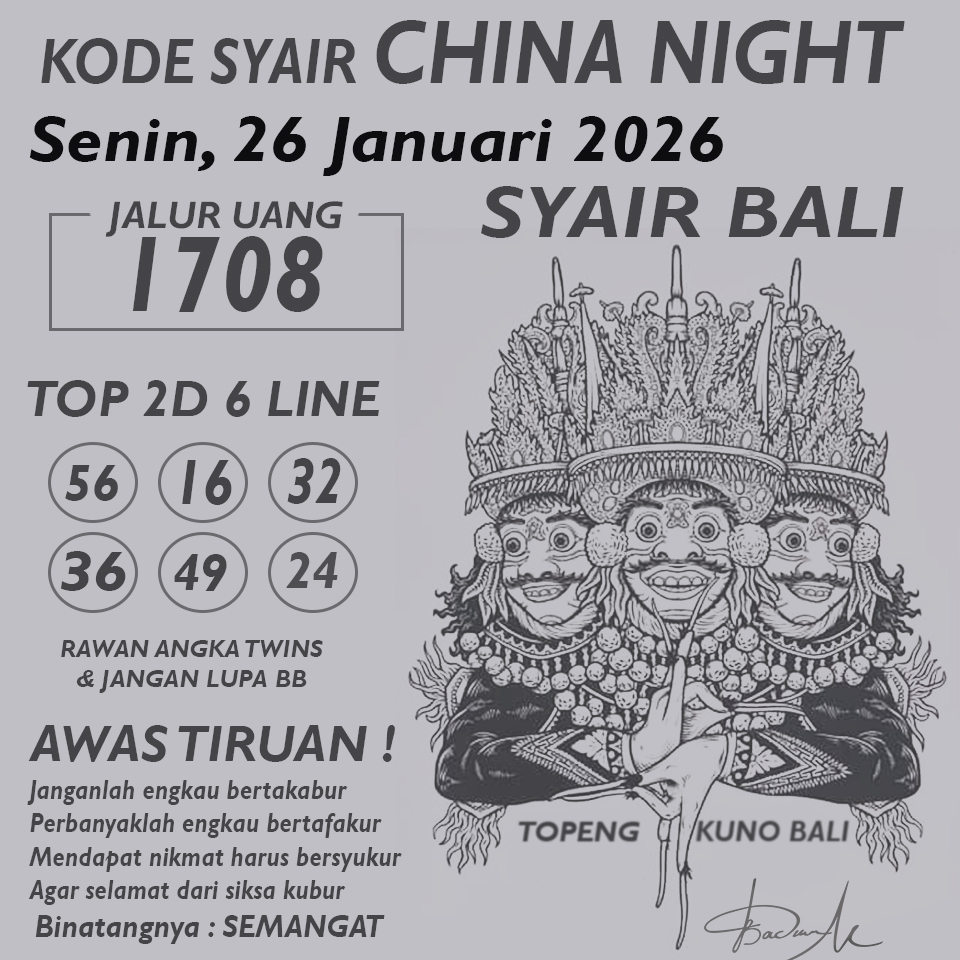 KODE SYAIR CHINA NIGHT
Senin, 26 Januari 2026
SYAIR BALI
JALUR UANG
1708
TOP 2D 6 LINE
56 16 32
36 49 24
RAWAN ANGKA TWINS
& JANGAN LUPA BB
AWAS TIRUAN !
Janganlah engkau bertakabur
Perbanyaklah engkau bertafakur
Mendapat nikmat harus bersyukur
Agar selamat dari siksa kubur
Binatangnya : SEMANGAT
TOPENG KUNO BALI